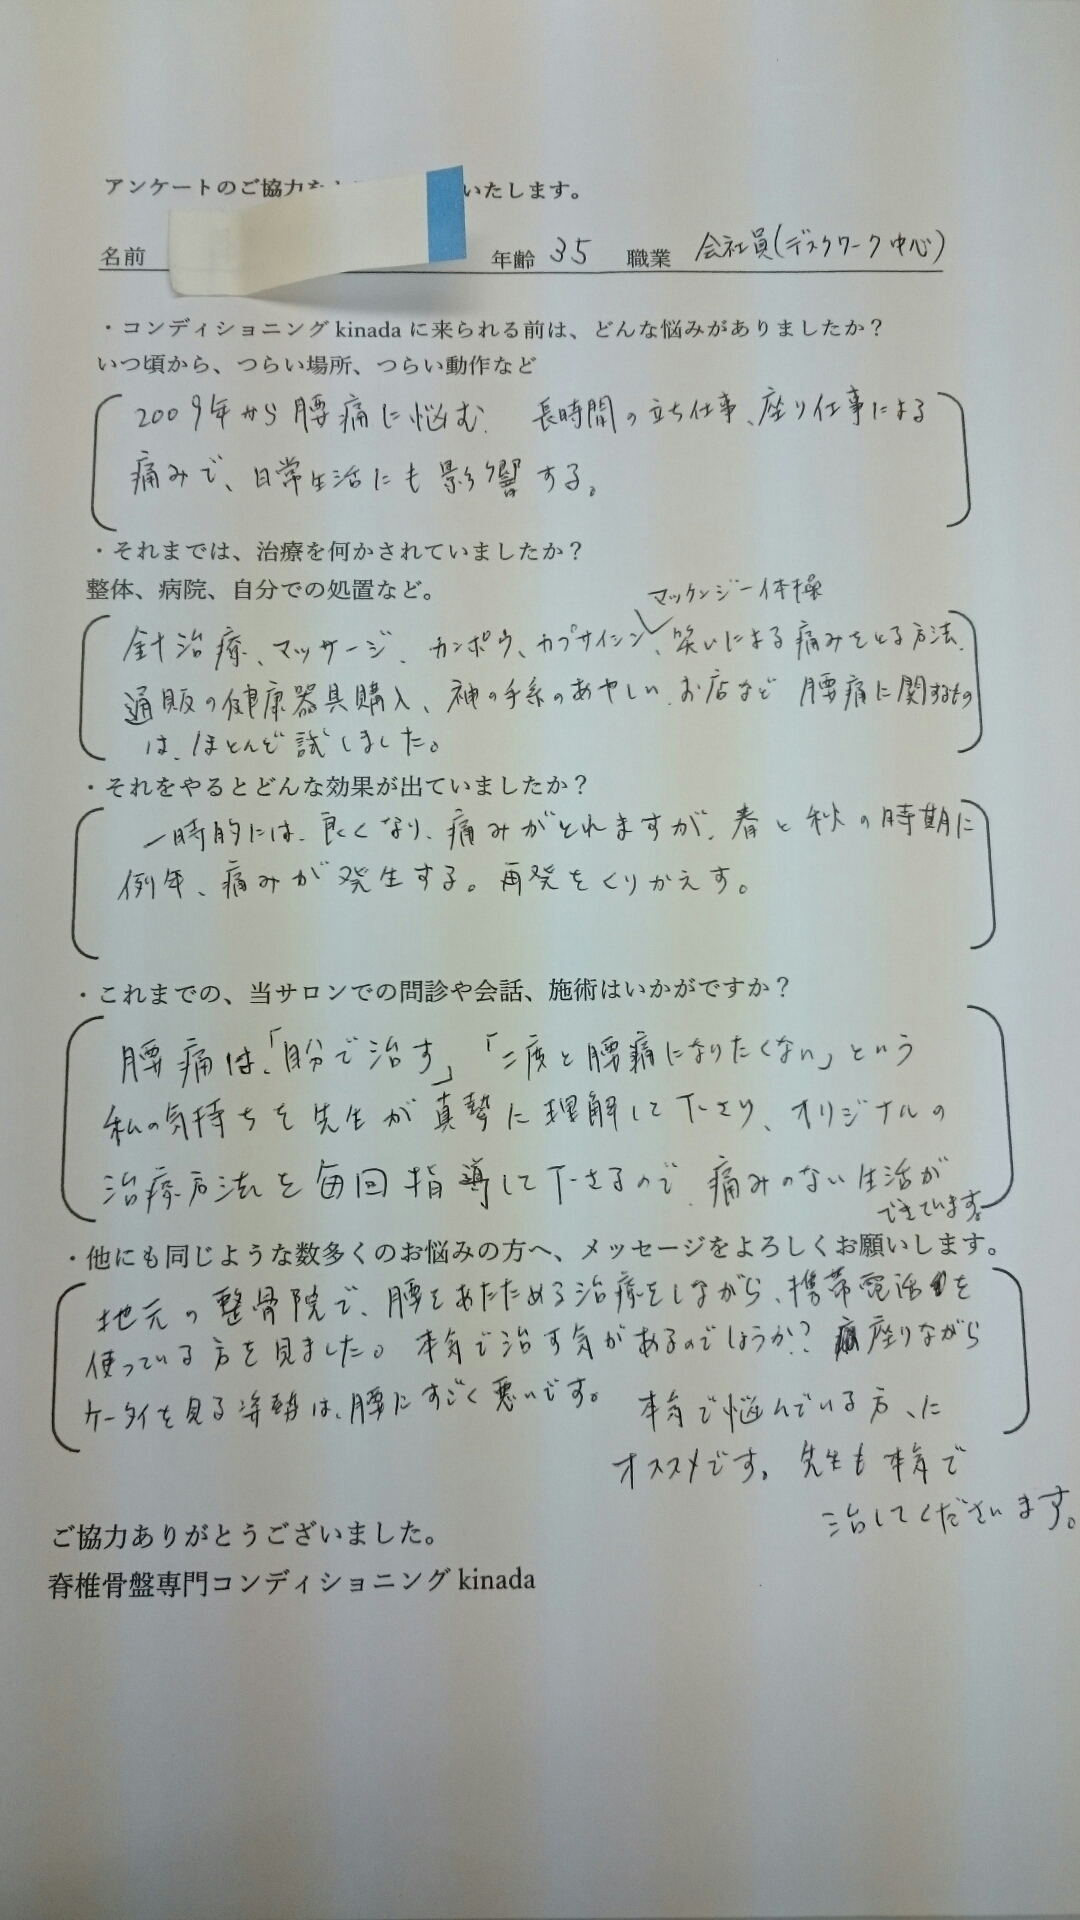 アンケートのご協力を いたします。
名前 年齢 35 職業 会社員(デスクワーク中心)
・コンディショニングkinadaに来られる前は、どんな悩みがありましたか？
いつ頃から、つらい場所、つらい動作など
2009年から腰痛に悩む. 長時間の立ち仕事、座り仕事による
痛みで、日常生活にも影響する。
・それまでは、治療を何かされていましたか？
整体、病院、自分での処置など。
マッケンジー体操
針治療、マッサージ、カンポウ、カプサイシン、笑いによる痛みをとる方法、
通販の健康器具購入、神の手系のあやしいお店など 腰痛に関するもの
は、ほとんど試しました。
・それをやるとどんな効果が出ていましたか？
一時的には、良くなり、痛みがとれますが、春と秋の時期に
例年、痛みが発生する。再発をくりかえす。
・これまでの、当サロンでの問診や会話、施術はいかがですか？
腰痛は、「自分で治す」「二度と腰痛になりたくない」という
私の気持ちを先生が真摯に理解して下さり、オリジナルの
治療方法を毎回指導して下さるので、痛みのない生活が
できています。
・他にも同じような数多くのお悩みの方へ、メッセージをよろしくお願いします。
地元の整骨院で、腰をあたためる治療をしながら、携帯電話を
使っている方を見ました。本気で治す気があるのでしょうか？座りながら
ケータイを見る姿勢は、腰にすごく悪いです。 本気で悩んでいる方、に
オススメです。先生も本気で
治してくださいます。
ご協力ありがとうございました。
脊椎骨盤専門コンディショニングkinada